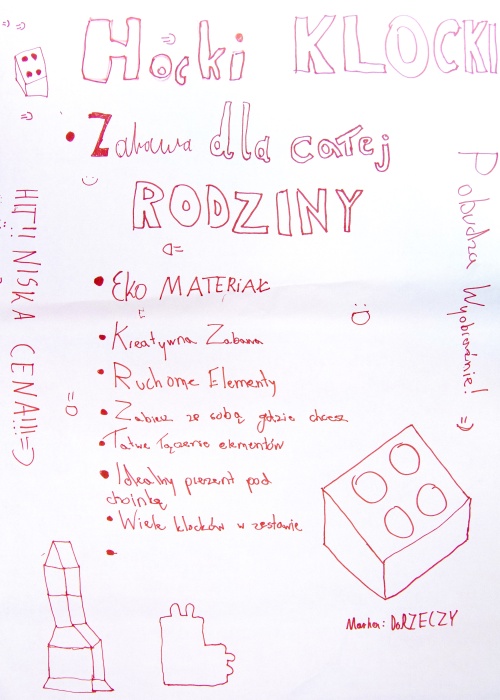 Hocki KLOCKI
• Zabawa dla całej
RODZINY
• Eko MATERIAŁ
• Kreatywna Zabawa
• Ruchome Elementy
• Zabierz ze sobą gdzie chcesz
• Łatwe łączenie elementów
• Idealny prezent pod
choinkę
• Wiele klocków w zestawie
Marka: DoRZECZY
HIT!! NISKA CENA!!! =)
Pobudza Wyobraźnie! =)
:D
=D